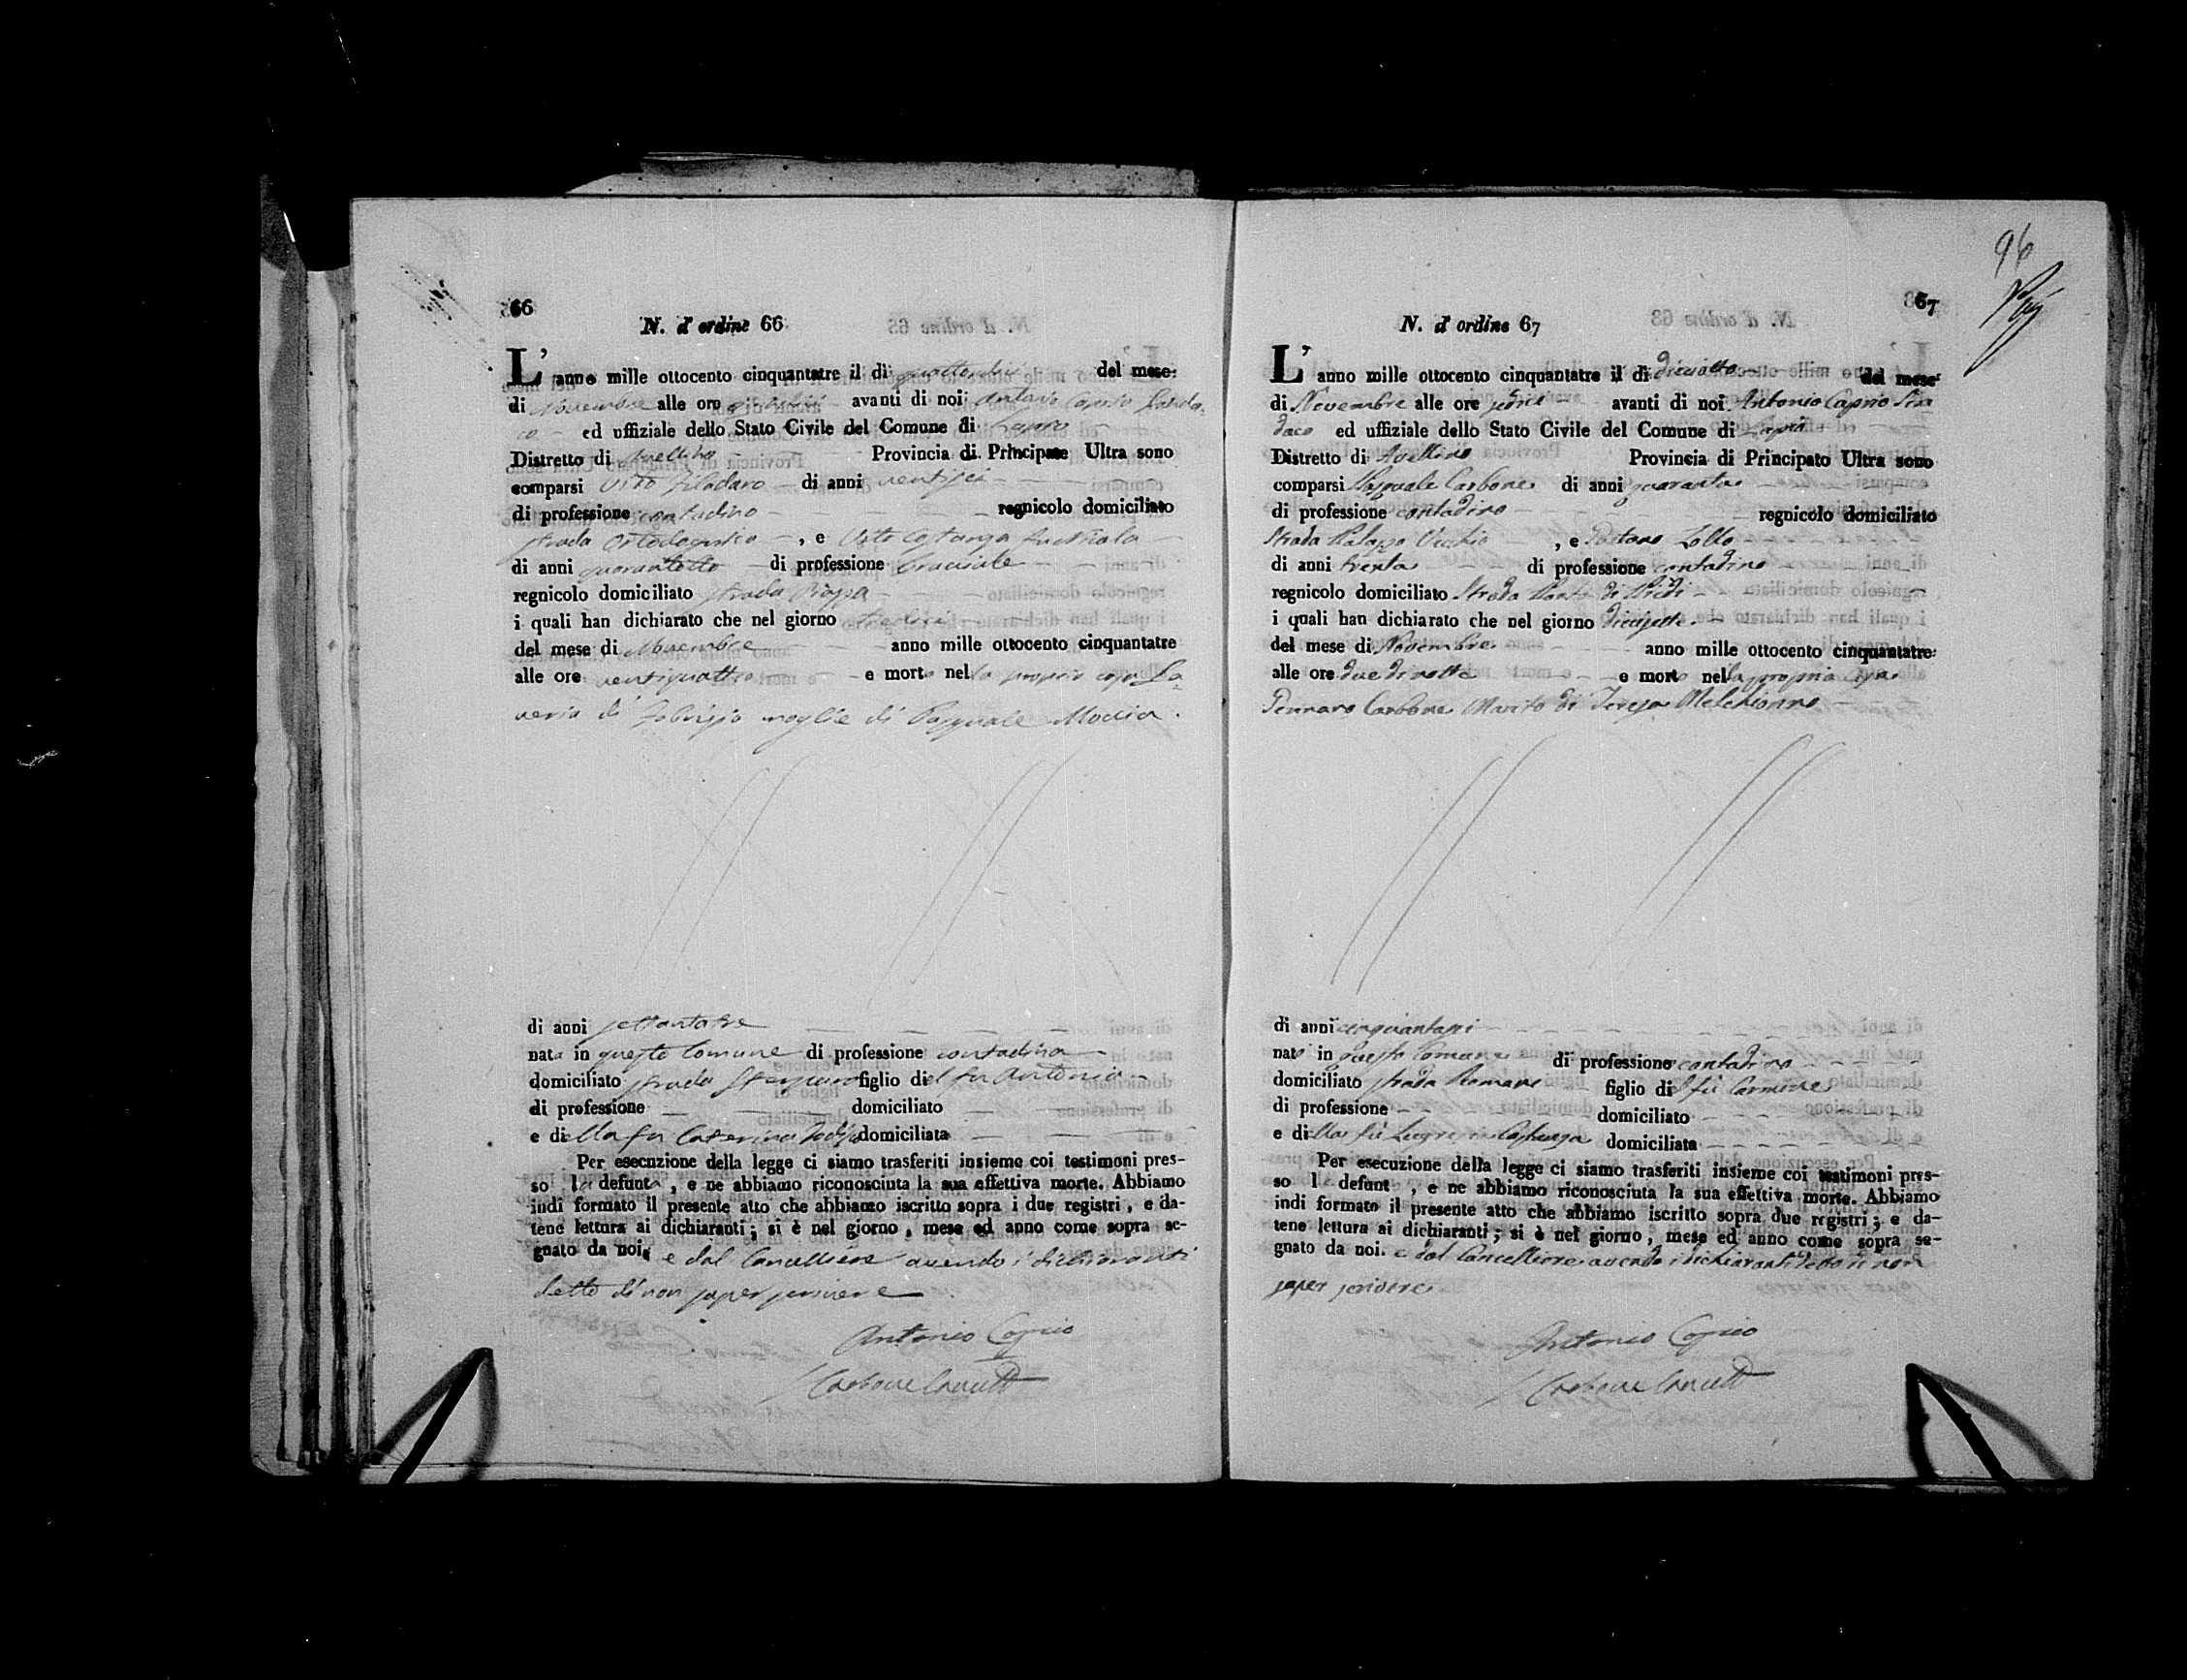 66
N. d'ordine 66
L'anno mille ottocento cinquantatre il dì quattordici del mese
di Novembre alle ore avanti di noi Antonio Caprio Sinda
co ed uffiziale dello Stato Civile del Comune di Lapio
Distretto di Avellino Provincia di Principato Ultra sono
comparsi Vito di anni ventisei
di professione contadino regnicolo domiciliato
strada , e Vito Costanza
di anni quarantotto di professione bracciale
regnicolo domiciliato strada
i quali han dichiarato che nel giorno tredici
del mese di Novembre anno mille ottocento cinquantatre
alle ore ventiquattro e morta nella propria casa Sa
veria di Fabrizio moglie di Pasquale Moccia.
di anni settantatre
nata in questo Comune di professione contadina
domiciliato strada figlio del fu Antonio
di professione domiciliato
e della fu Caterina domiciliata
Per esecuzione della legge ci siamo trasferiti insieme coi testimoni pres-
so la defunta, e ne abbiamo riconosciuta la sua effettiva morte. Abbiamo
indi formato il presente atto che abbiamo iscritto sopra i due registri, e da-
tene lettura ai dichiaranti; si è nel giorno, mese ed anno come sopra se-
gnato da noi, e dal Cancelliere avendo i dichiaranti
detto di non saper scrivere
Antonio Caprio
Carbone Canc
96
67
N. d'ordine 67
L'anno mille ottocento cinquantatre il dì diciotto del mese
di Novembre alle ore sedici avanti di noi Antonio Caprio Sin
daco ed uffiziale dello Stato Civile del Comune di Lapio
Distretto di Avellino Provincia di Principato Ultra sono
comparsi Pasquale Carbone di anni quaranta
di professione contadino regnicolo domiciliato
Strada Palazzo Vecchio , e Zollo
di anni trenta di professione contadino
regnicolo domiciliato Strada di
i quali han dichiarato che nel giorno diciassette
del mese di Novembre anno mille ottocento cinquantatre
alle ore due di notte e morto nella propria casa
Gennaro Carbone Marito di Teresa Melchionno
di anni cinquantasei
nato in questo Comune di professione contadino
domiciliato strada Romane figlio del fù Carmine
di professione domiciliato
e della fù Costanza domiciliata
Per esecuzione della legge ci siamo trasferiti insieme coi testimoni pres-
so l defunt , e ne abbiamo riconosciuta la sua effettiva morte. Abbiamo
indi formato il presente atto che abbiamo iscritto sopra due registri; e da-
tene lettura ai dichiaranti; si è nel giorno, mese ed anno come sopra se-
gnato da noi. e dal Cancelliere avendo i dichiaranti detto di non
saper scrivere
Antonio Caprio
Carbone Canc